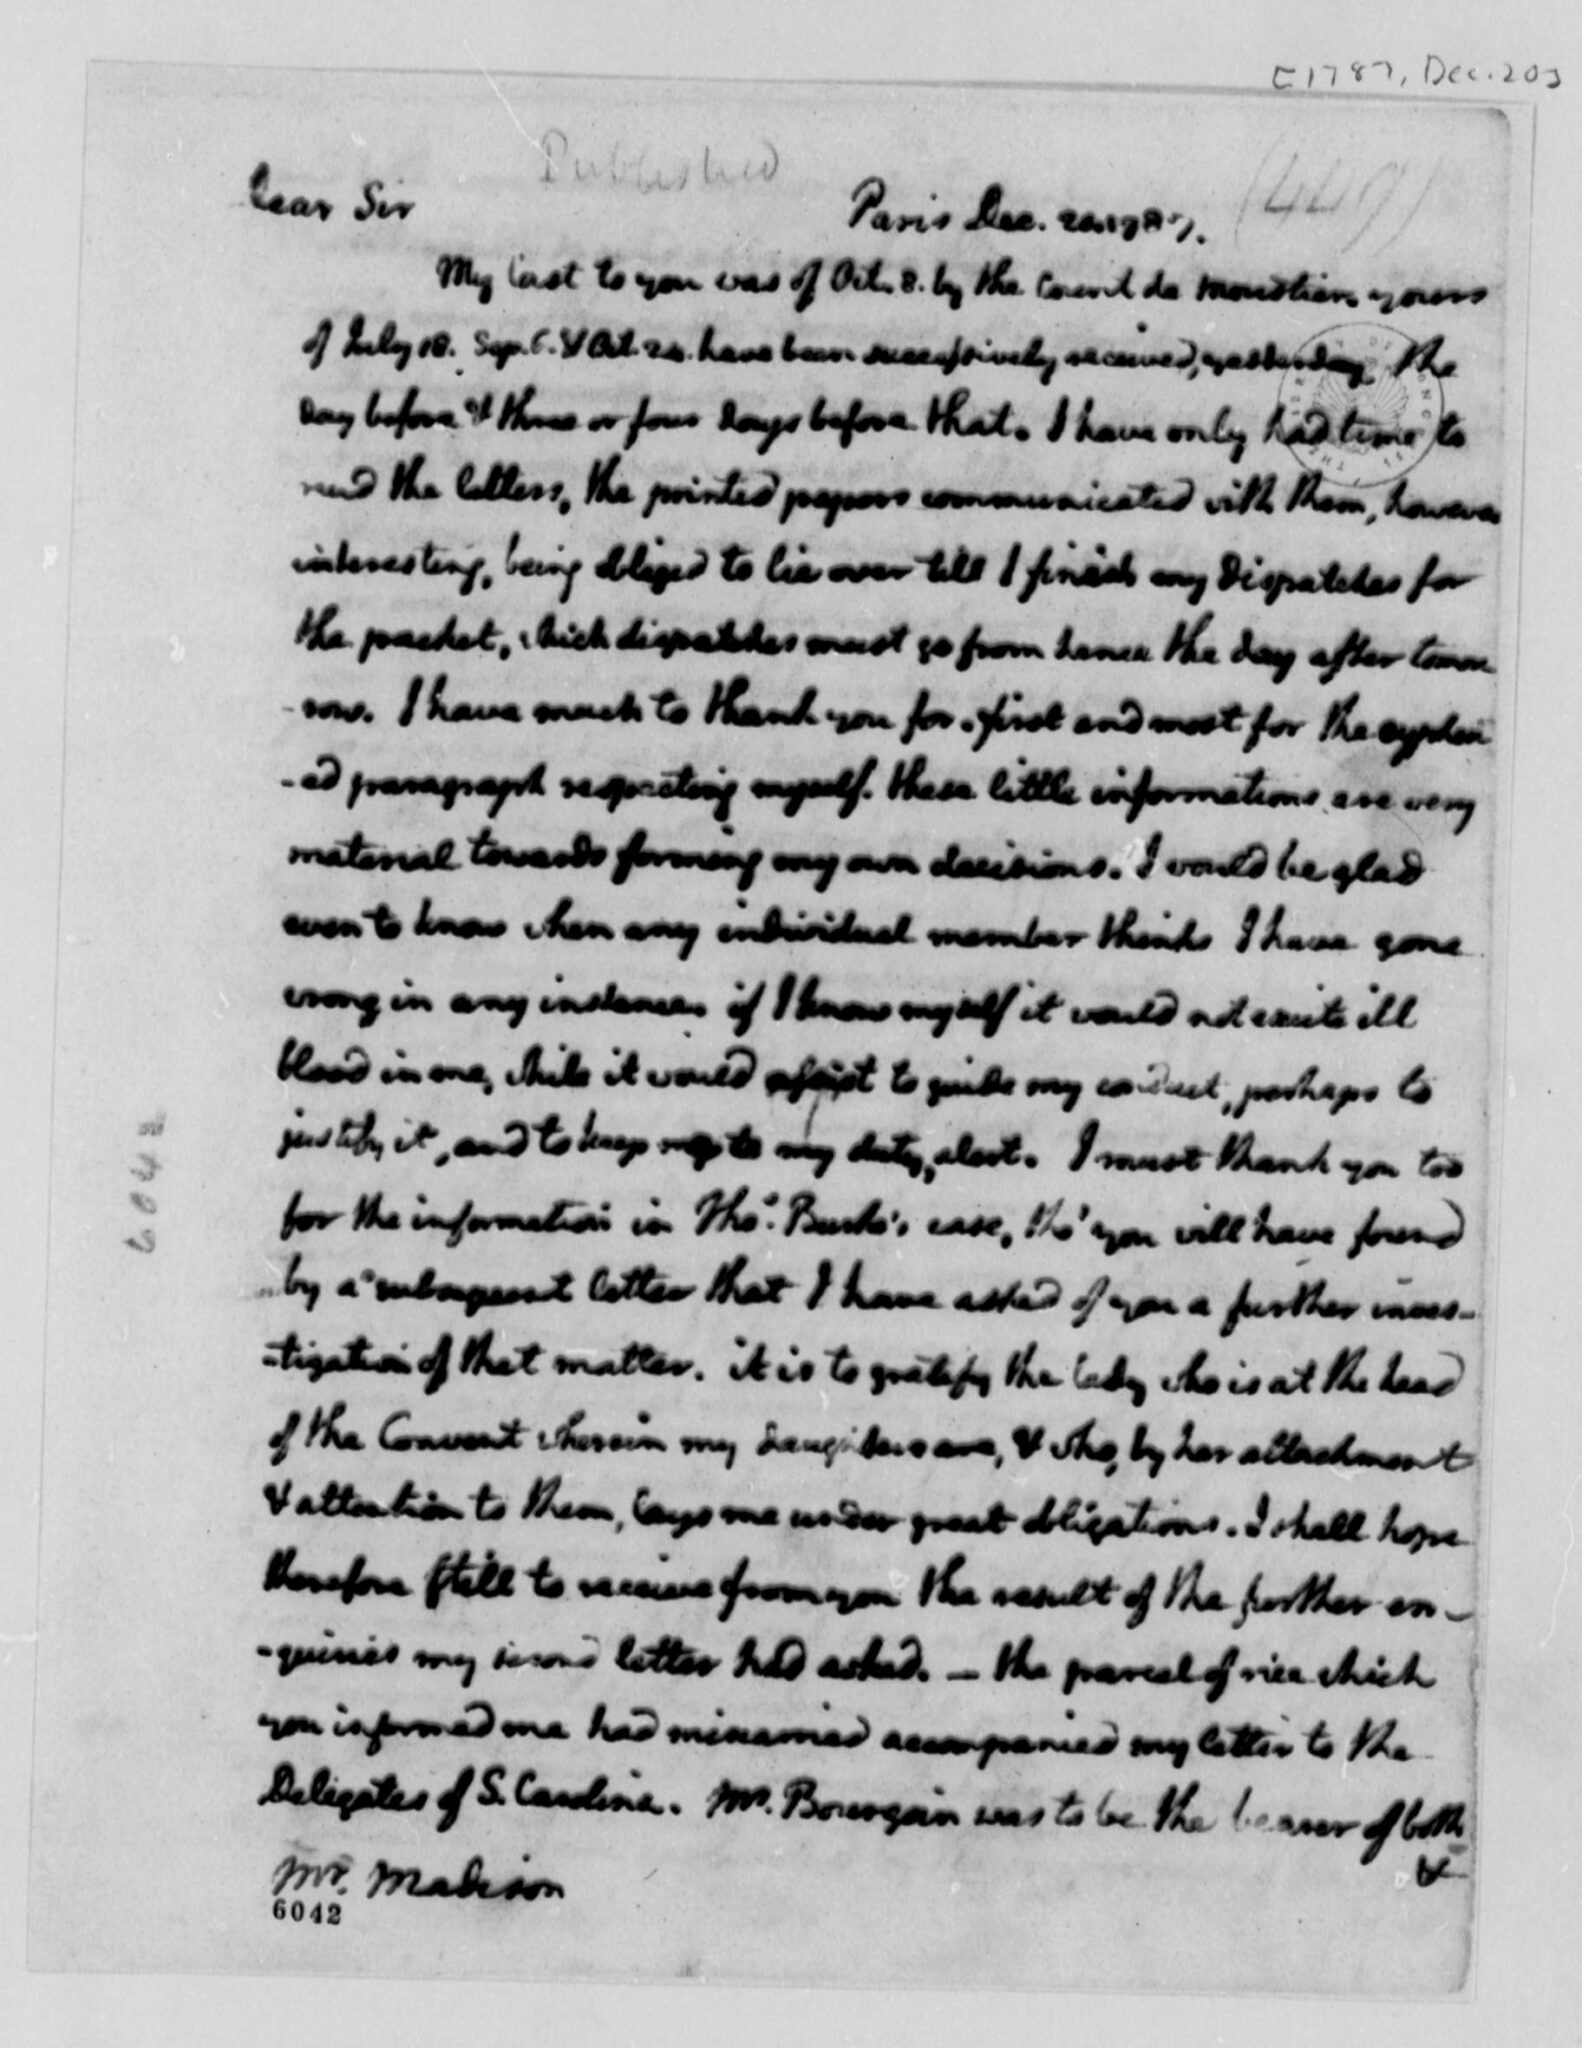 [1787, Dec. 20]
Published
(449)
Dear Sir
Paris Dec. 20. 1787.
My last to you was of Oct. 8. by the Count de Moustier. yours
of July 18. Sep. 6. & Oct. 24. have been successively received, yesterday, the
day before & three or four days before that. I have only had time to
read the letters, the printed papers communicated with them, however
interesting, being obliged to lie over till I finish my dispatches for
the packet, which dispatches must go from hence the day after tomor-
-row. I have much to thank you for. first and most for the cypher-
-ed paragraph respecting myself. these little informations are very
material towards forming my own decisions. I would be glad
even to know when any individual member thinks I have gone
wrong in any instance. if I know myself it would not excite ill
blood in me, while it would assist to guide my conduct, perhaps to
justify it, and to keep me to my duty, alert. I must thank you too
for the information in Thos. Burke's case, tho' you will have found
by a subsequent letter that I have asked of you a further inves-
-tigation of that matter. it is to gratify the lady who is at the head
of the Convent wherein my daughters are, & who, by her attachment
& attention to them, lays me under great obligations. I shall hope
therefore still to receive from you the result of the further en-
-quiries my second letter had asked. — the parcel of rice which
you informed me had miscarried accompanied my letter to the
Delegates of S. Carolina. Mr. Bourgoin was to be the bearer of both
&
Mr. Madison
6042
6042